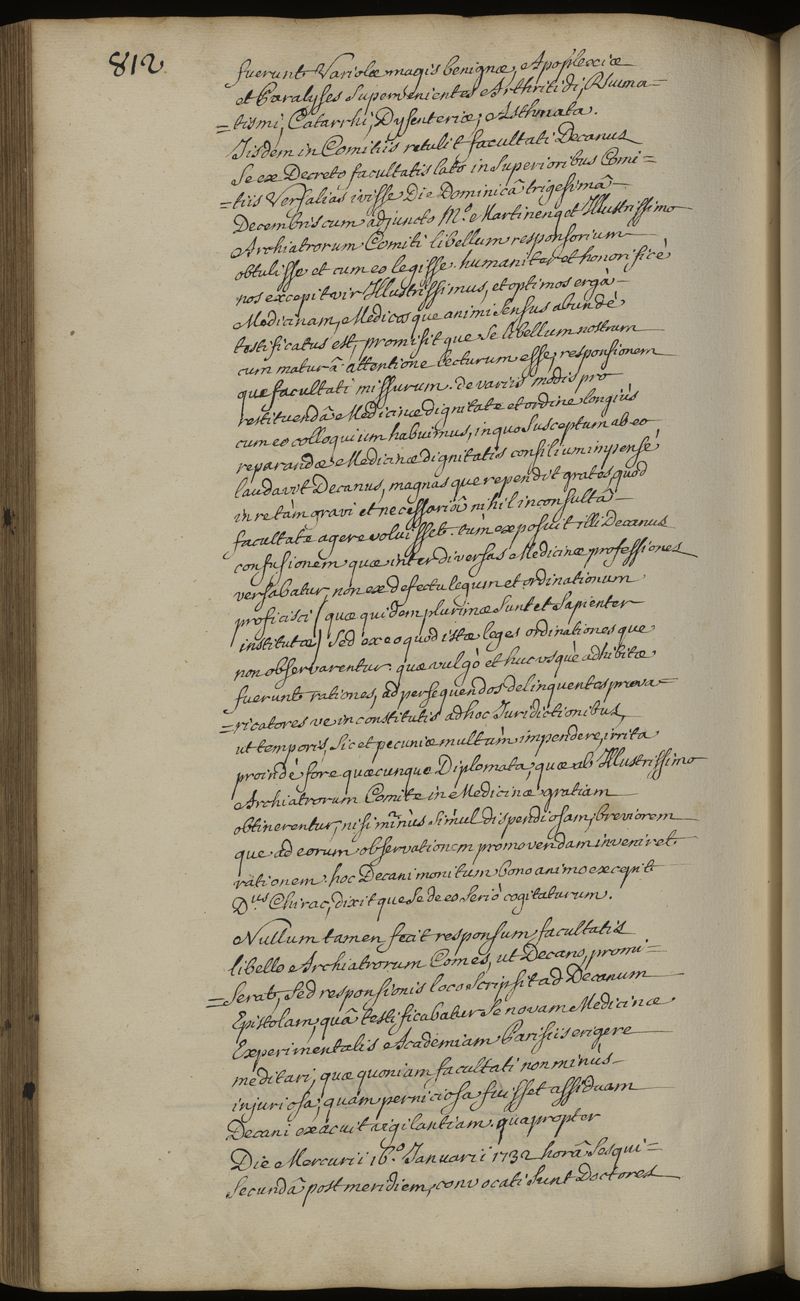 812
fuerunt Variolæ magis benignæ, Apoplexiæ
et Paralyses supervenientes Arthritidi, Rhuma=
=tismi, Catarrhi, Dysenteriæ, Asthmata.
Iisdem in Comitiis retulit facultati Decanus
se ex Decreto facultatis lato in superioribus Comi=
=tiis Versalias ivisse Die Dominicâ trigesimâ
Decembris cum adjuncto M.º Martinenq et Illustrissimo
Archiatrorum Comiti libellum responsorium
obtulisse et cum eo legisse. humaniter et honorificè
nos excepit vir Illustrissimus, et optimos ergà
Medicinam, Medicosque animi sensus abundè
testificatus est, promisitque se libellum nostrum
cum maturâ attentione lecturum esse, responsionem
que facultati missurum. de variis modis pro
restituendâ Medicinæ dignitate et ordine longiùs
cum eo colloquium habuimus, in quo susceptum ab eo
reparandæ Medicinæ dignitatis consilium impensè
laudavit Decanus, magnasque rependit grates quod
in re tàm gravi et necessariâ nihil inconsultâ
facultate agere voluisset. tùm exposuit illi Decanus
confusionem quæ inter diversas Medicinæ professiones
versabatur, non ex defectu legum et ordinationum
proficisci (quæ quidem plurimæ sunt et sapienter
institutæ) sed ex eo quod istæ leges ordinationesque
non observarentur. quæ vulgò et huc usquè adhibitæ
fuerunt rationes, ad persequendos delinquentes præva=
=ricatores ve in constitutis ad hoc Iurisdictionibus,
ut temporis, sic et pecuniæ multùm impendere, irrita
proindè fore quæcunque Diplomata, quæ ab Illustrissimo
Archiatrorum Comite in Medicinæ gratiam
obtinerentur, nisi minùs simul dispendiosam, breviorem
que ad eorum observationem promovendam inveniret
rationem. hoc Decani monitum bono animo excepit
D.us Chirac, dixitque se de eo seriò cogitaturum.
Nullum tamen fecit responsum facultatis
libello Archiatrorum Comes, ut Decano, promi=
=serat, sed responsionis loco scripsit ad Decanum
Epistolam, quâ testificabatur se novam Medicinæ
Experimentalis Academiam Parisiis erigere
meditari, quæ quoniam facultati non minùs
injuriosa, quàm perniciosa fuisset assiduam
Decani exacuit vigilantiam. quapropter
Die Mercurii 16.º Ianuarii 1732 horâ sesqui=
secundâ post meridiem, convocati sunt Doctores